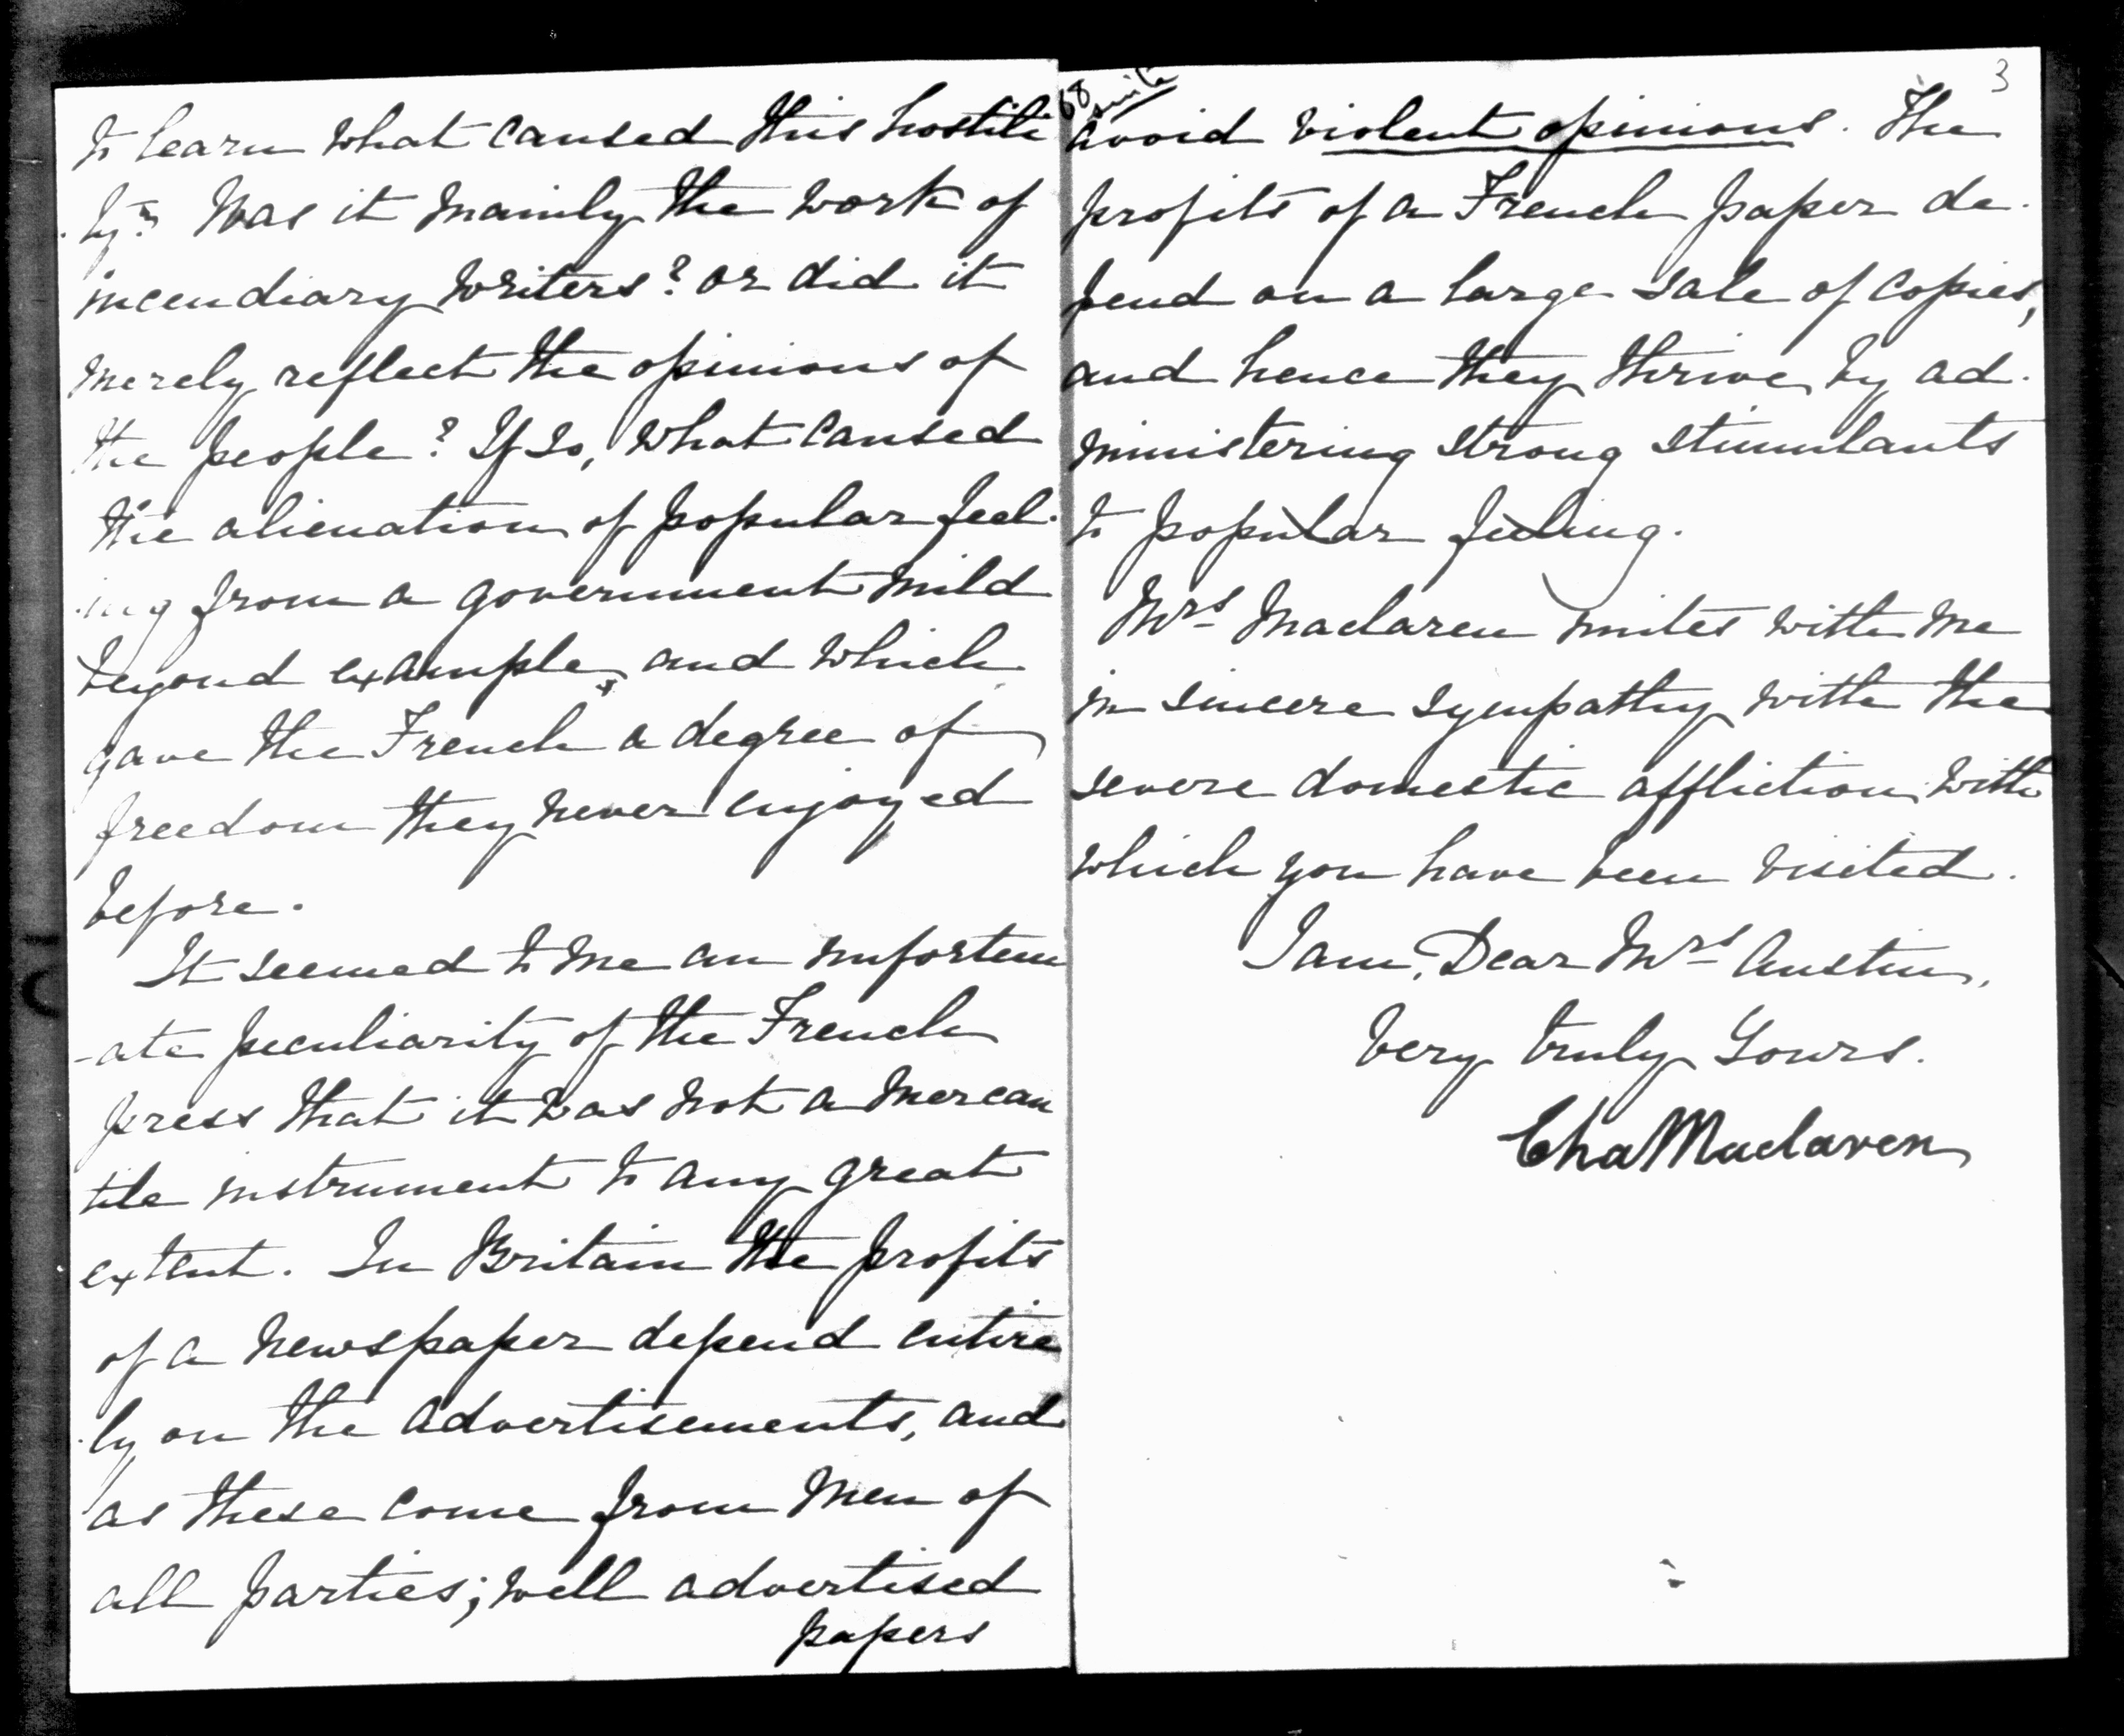 to learn what caused this hostili
ty? Was it mainly the work of
incendiary writers? or did it
merely reflect the opinions of
the people? If so, what caused
the alienation of popular feel-
ing from a government mild
beyond example, and which
gave the French a degree of
freedom they never enjoyed
before.
It seemed to me an unfortun
-ate peculiarity of the French
press that it was not a mercan
tile instrument to any great
extent. In Britain the profits
of a newspaper depend entire
-ly on the advertisements, and
as these come from men of
all parties; well advertised
papers
3
68
suite
avoid violent opinions. The
profits of a French paper de-
pend on a large sale of copies,
and hence they thrive by ad-
ministering strong stimulants
to popular feeling.
Mrs Maclaren unites with me
in sincere sympathy with the
severe domestic affliction with
which you have been visited.
I am, Dear Mrs Austin,
Very truly Yours.
Cha Maclaren